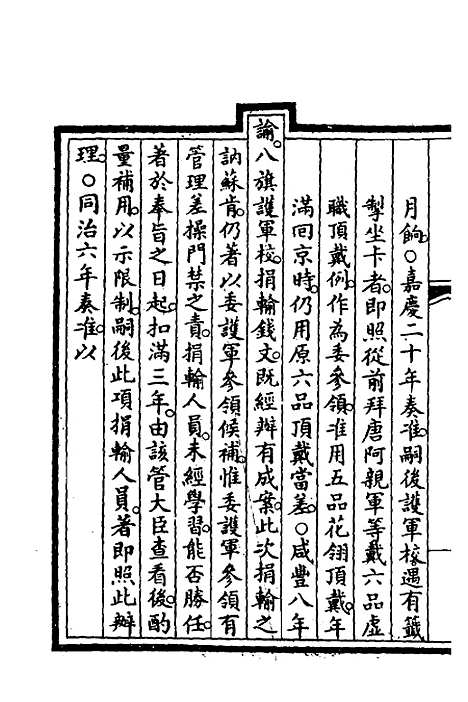 月餉。○嘉慶二十年奏准。嗣後護軍校遇有籤
掣坐卡者。即照從前拜唐阿親軍等戴六品虛
職頂戴例。作為委參領。准用五品花翎頂戴。年
滿回京時。仍用原六品頂戴當差。○咸豐八年
諭。八旗護軍校。捐輸錢文。既經辦有成案。此次捐輸之
訥蘇肯。仍著以委護軍參領候補。惟委護軍參領有
管理差操門禁之責。捐輸人員。未經學習。能否勝任。
著於奉旨之日起。扣滿三年。由該管大臣查看後。酌
量補用。以示限制。嗣後此項捐輸人員。著即照此辦
理。○同治六年奏准。以